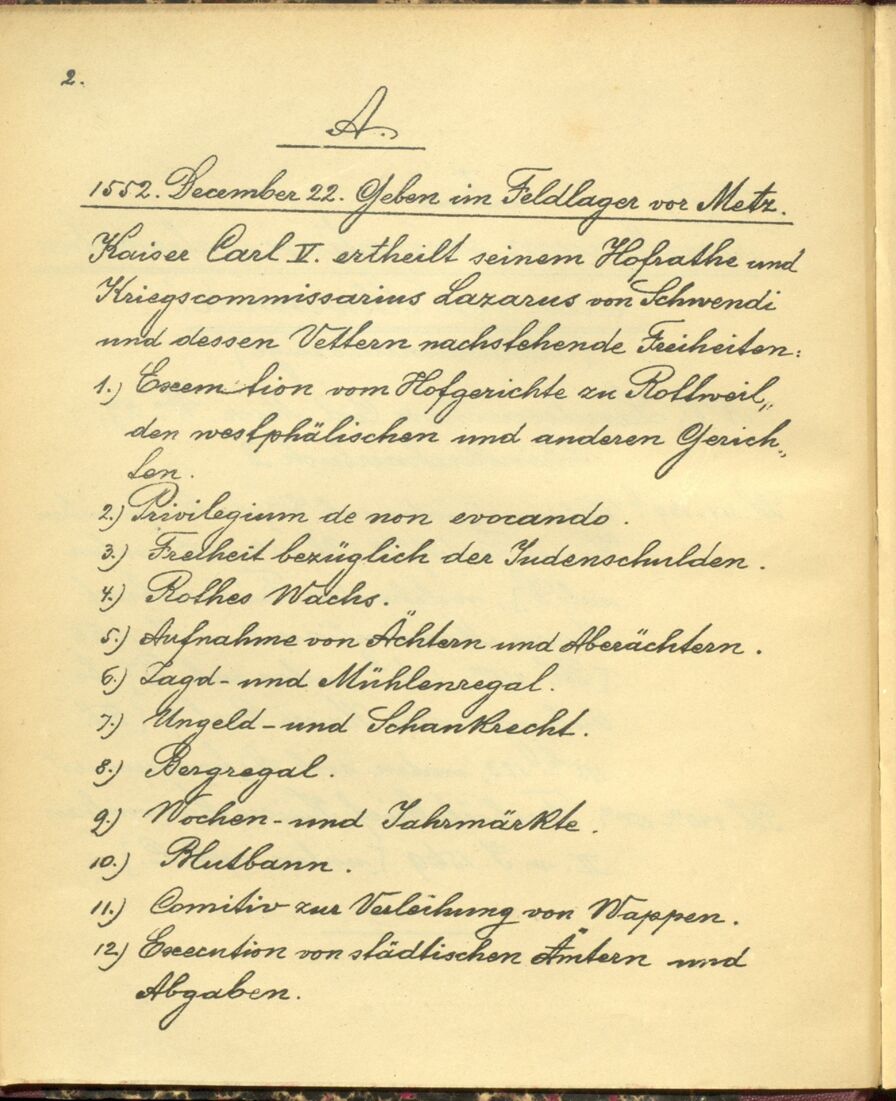 2.
A.
1552. December 22. Geben im Feldlager vor Metz.
Kaiser Carl V. ertheilt seinem Hofrathe und
Kriegscommissarius Lazarus von Schwendi
und dessen Vettern nachstehende Freiheiten:
1.) Exemtion vom Hofgerichte zu Rottweil,
den westphälischen und anderen Gerich„
ten.
2.) Privilegium de non evocando.
3.) Freiheit bezüglich der Judenschulden.
4.) Rothes Wachs.
5.) Aufnahme von Ächtern und Aberächtern.
6.) Jagd- und Mühlenregal.
7.) Ungeld- und Schankrecht.
8.) Bergregal.
9.) Wochen- und Jahrmärkte.
10.) Blutbann.
11.) Comitiv zur Verleihung von Wappen.
12.) Execution von städtischen Ämtern und
Abgaben.